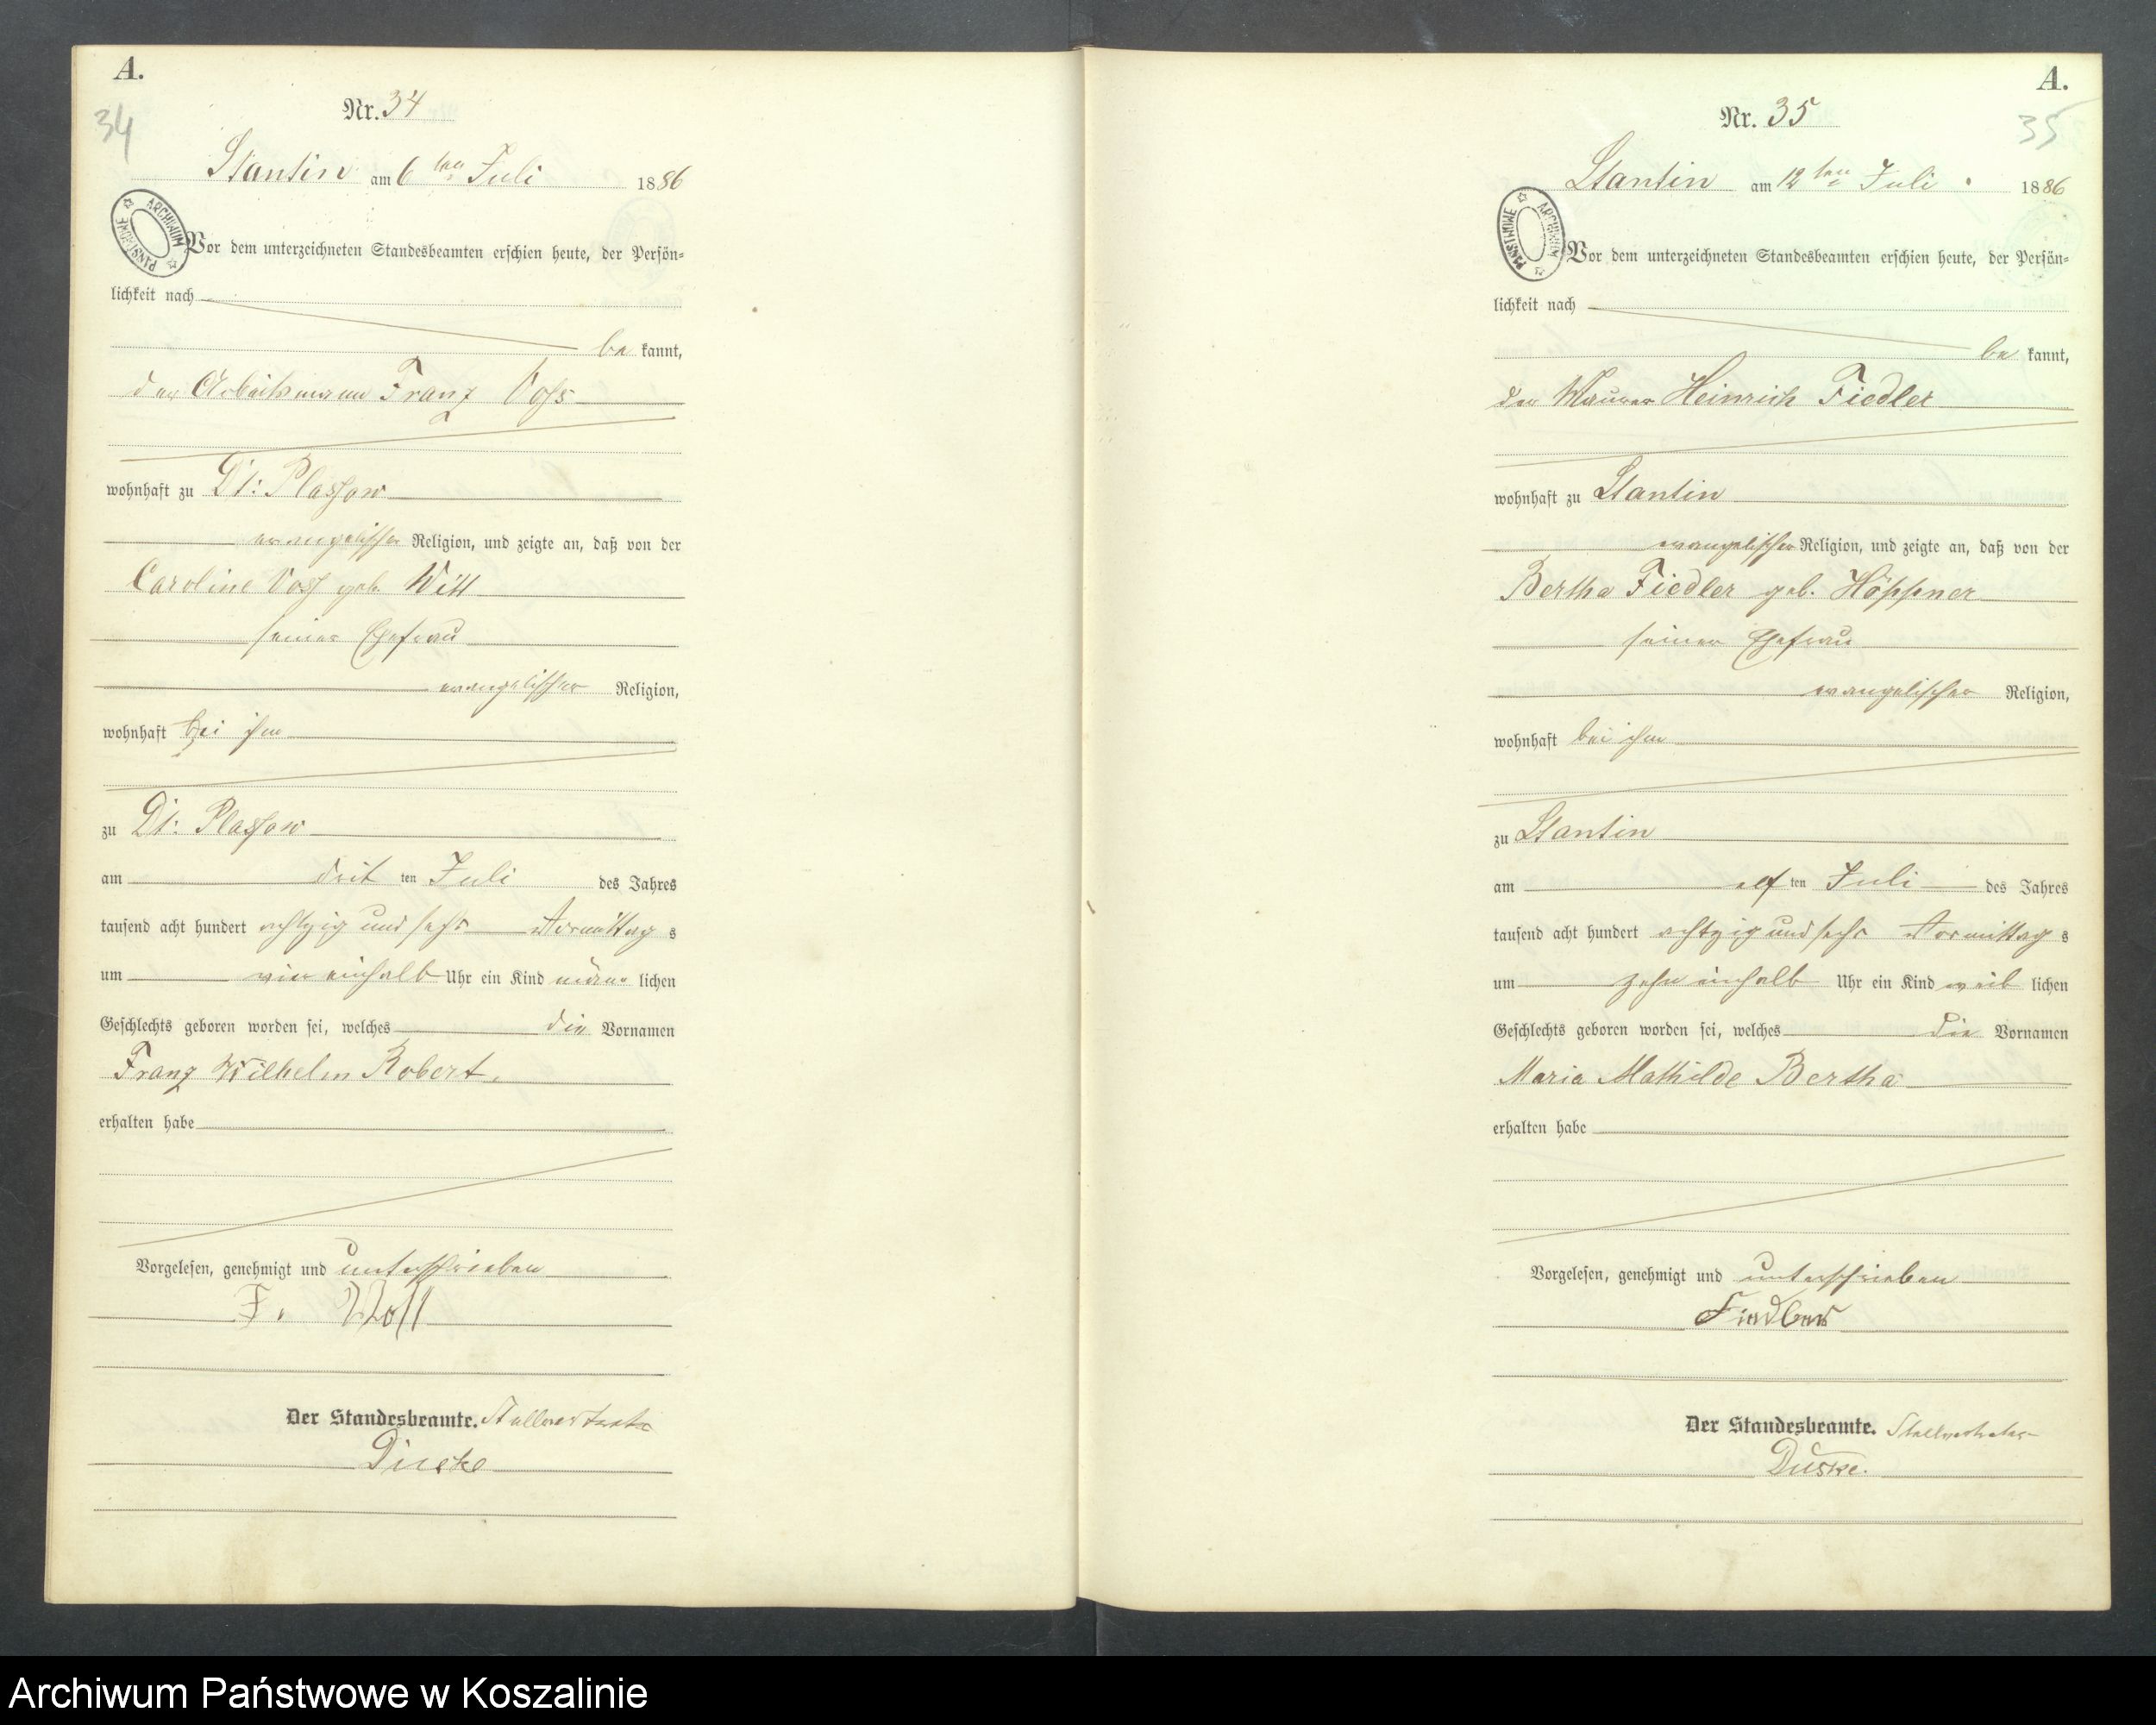 A.
34
Nr. 34
Stantin am 6ten Juli 1886
ARCHIWUM PAŃSTWOWE
Vor dem unterzeichneten Standesbeamten erschien heute, der Persön-
lichkeit nach
be kannt,
der Arbeitsmann Franz Voß
wohnhaft zu Dt: Plassow
evangelischer Religion, und zeigte an, daß von der
Caroline Voß geb. Witt
seiner Ehefrau
evangelischer Religion,
wohnhaft bei ihm
zu Dt: Plassow
am drit ten Juli des Jahres
tausend acht hundert achtzig und sechs Vormittag s
um vier einhalb Uhr ein Kind männ lichen
Geschlechts geboren worden sei, welches die Vornamen
Franz Wilhelm Robert.
erhalten habe
Vorgelesen, genehmigt und unterschrieben
F. Voß
Der Standesbeamte. Stellvertreter
Duske
A.
35
Nr. 35
Stantin am 12ten Juli 1886
ARCHIWUM PAŃSTWOWE
Vor dem unterzeichneten Standesbeamten erschien heute, der Persön-
lichkeit nach
be kannt,
der Maurer Heinrich Fiedler
wohnhaft zu Stantin
evangelischer Religion, und zeigte an, daß von der
Bertha Fiedler geb. Höppner
seiner Ehefrau
evangelischer Religion,
wohnhaft bei ihm
zu Stantin
am elf ten Juli des Jahres
tausend acht hundert achtzig und sechs Vormittag s
um zehn einhalb Uhr ein Kind weib lichen
Geschlechts geboren worden sei, welches die Vornamen
Maria Mathilde Bertha
erhalten habe
Vorgelesen, genehmigt und unterschrieben
Fiedler
Der Standesbeamte. Stellvertreter
Duske.
Archiwum Państwowe w Koszalinie